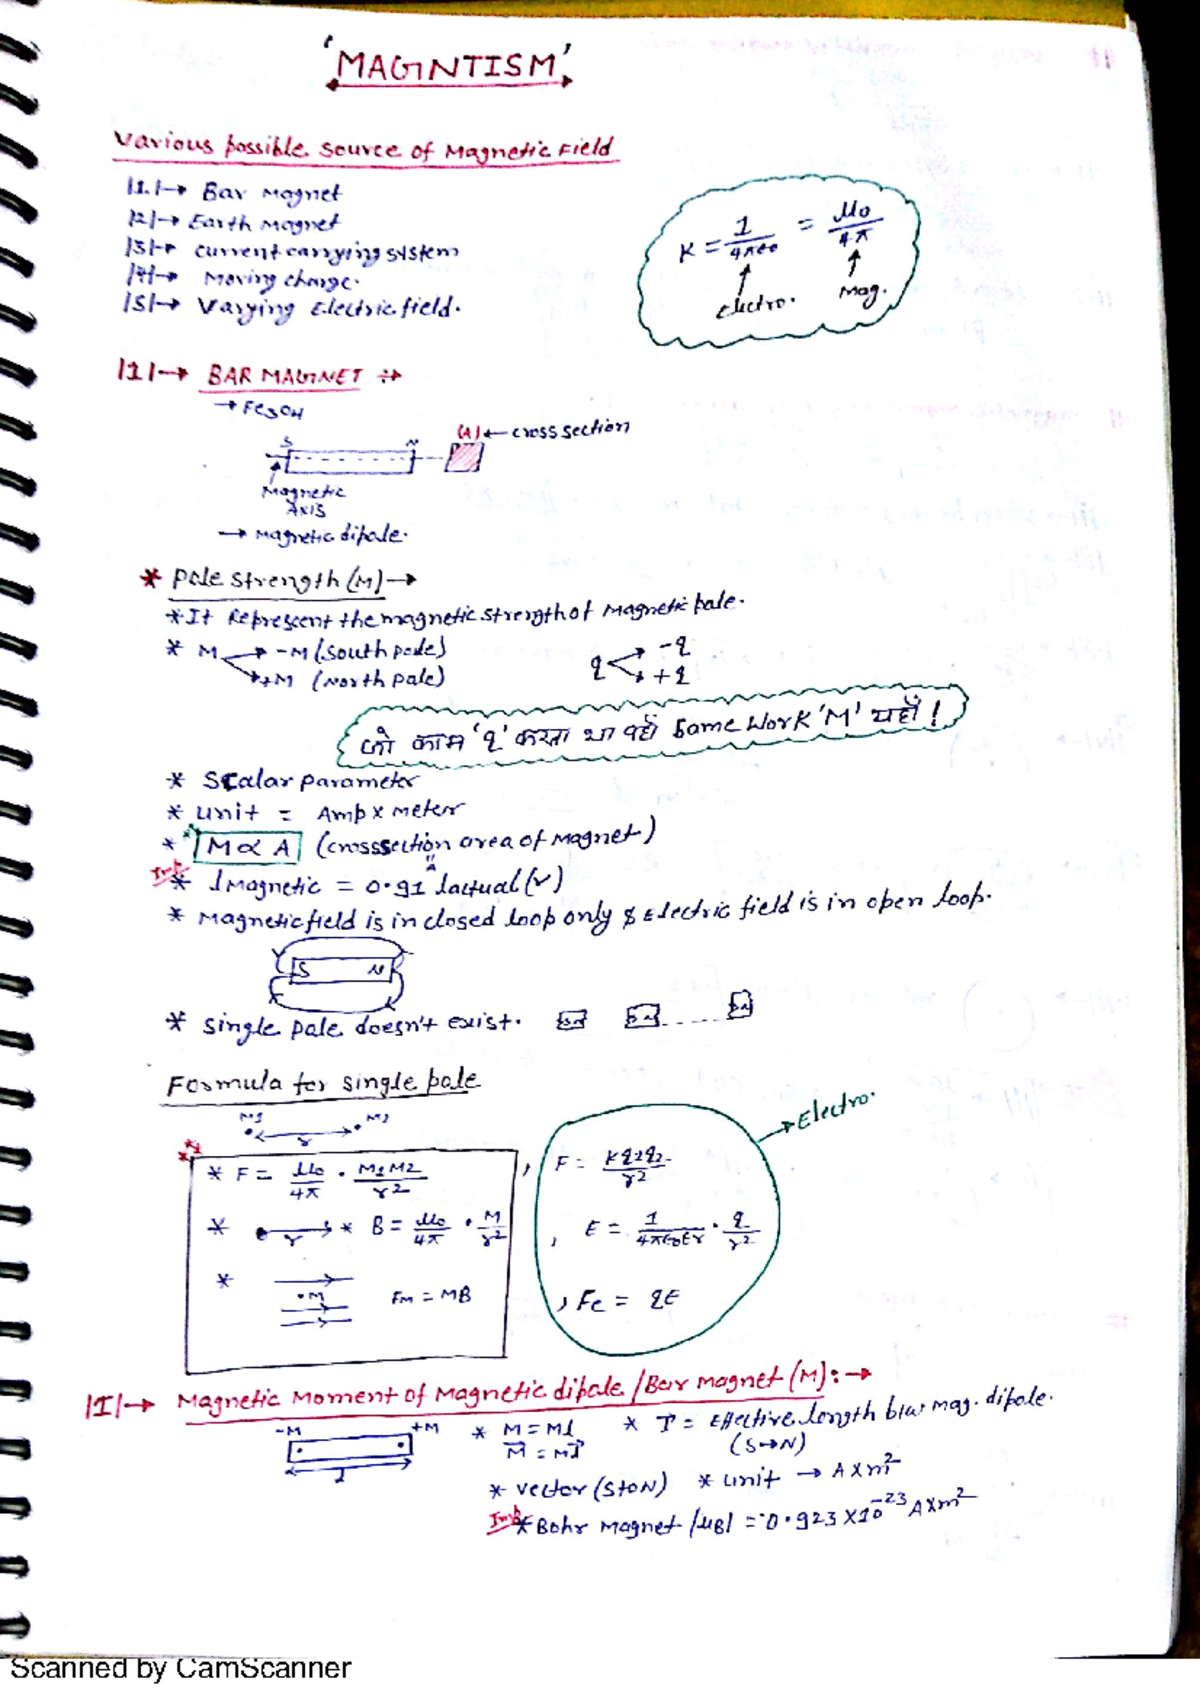 'MAGNTISM'
Various possible source of Magnetic Field
|1|→ Bar Magnet
|2|→ Earth Magnet
|3|→ current carrying system
|4|→ Moving charge.
|5|→ Varying Electric field.
K = 1/4πϵ0 = μ0/4π
Electro. Mag.
|1|→ BAR MAGNET :→
→ Fe3OH
S N (A) ← cross section
Magnetic
Axis
→ Magnetic dipole.
* Pole Strength (M) →
* It Represent the magnetic strength of Magnetic pole.
* M → -M (South pole)
→ +M (North pole)
q → -q
→ +q
जो काम 'q' करता था वहाँ Same Work 'M' यहाँ!
* Scalar parameter
* unit = Amp x meter
* M ∝ A (crosssection area of Magnet)
"A"
Imp * lMagnetic = 0.91 lactual (✓)
* Magnetic field is in closed loop only & Electric field is in open loop.
S N
* Single pole doesn't exist. S N S N ---- S N
Formula for single pole
M1 M2
r
* F = μ0/4π · M1M2/r2 , F = Kq1q2/r2
* r * B = μ0/4π · M/r2 , E = 1/4πϵ0ϵr · q/r2
* ·M Fm = MB , Fe = qE
→ Electro.
|I|→ Magnetic Moment of Magnetic dipole / Bar Magnet (M) :→
-M +M * M = Ml * l⃗ = Effective length b/w mag. dipole.
l M⃗ = Ml⃗ (S→N)
* vector (S to N) * unit → A x m2
Imp * Bohr Magnet |μB| = 0.923 x 10-23 A x m2
Scanned by CamScanner